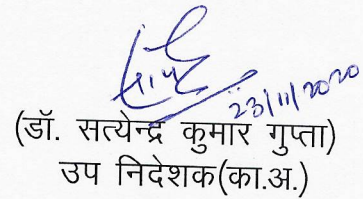 23/11/2020
(डॉ. सत्येन्द्र कुमार गुप्ता)
उप निदेशक(का.अ.)